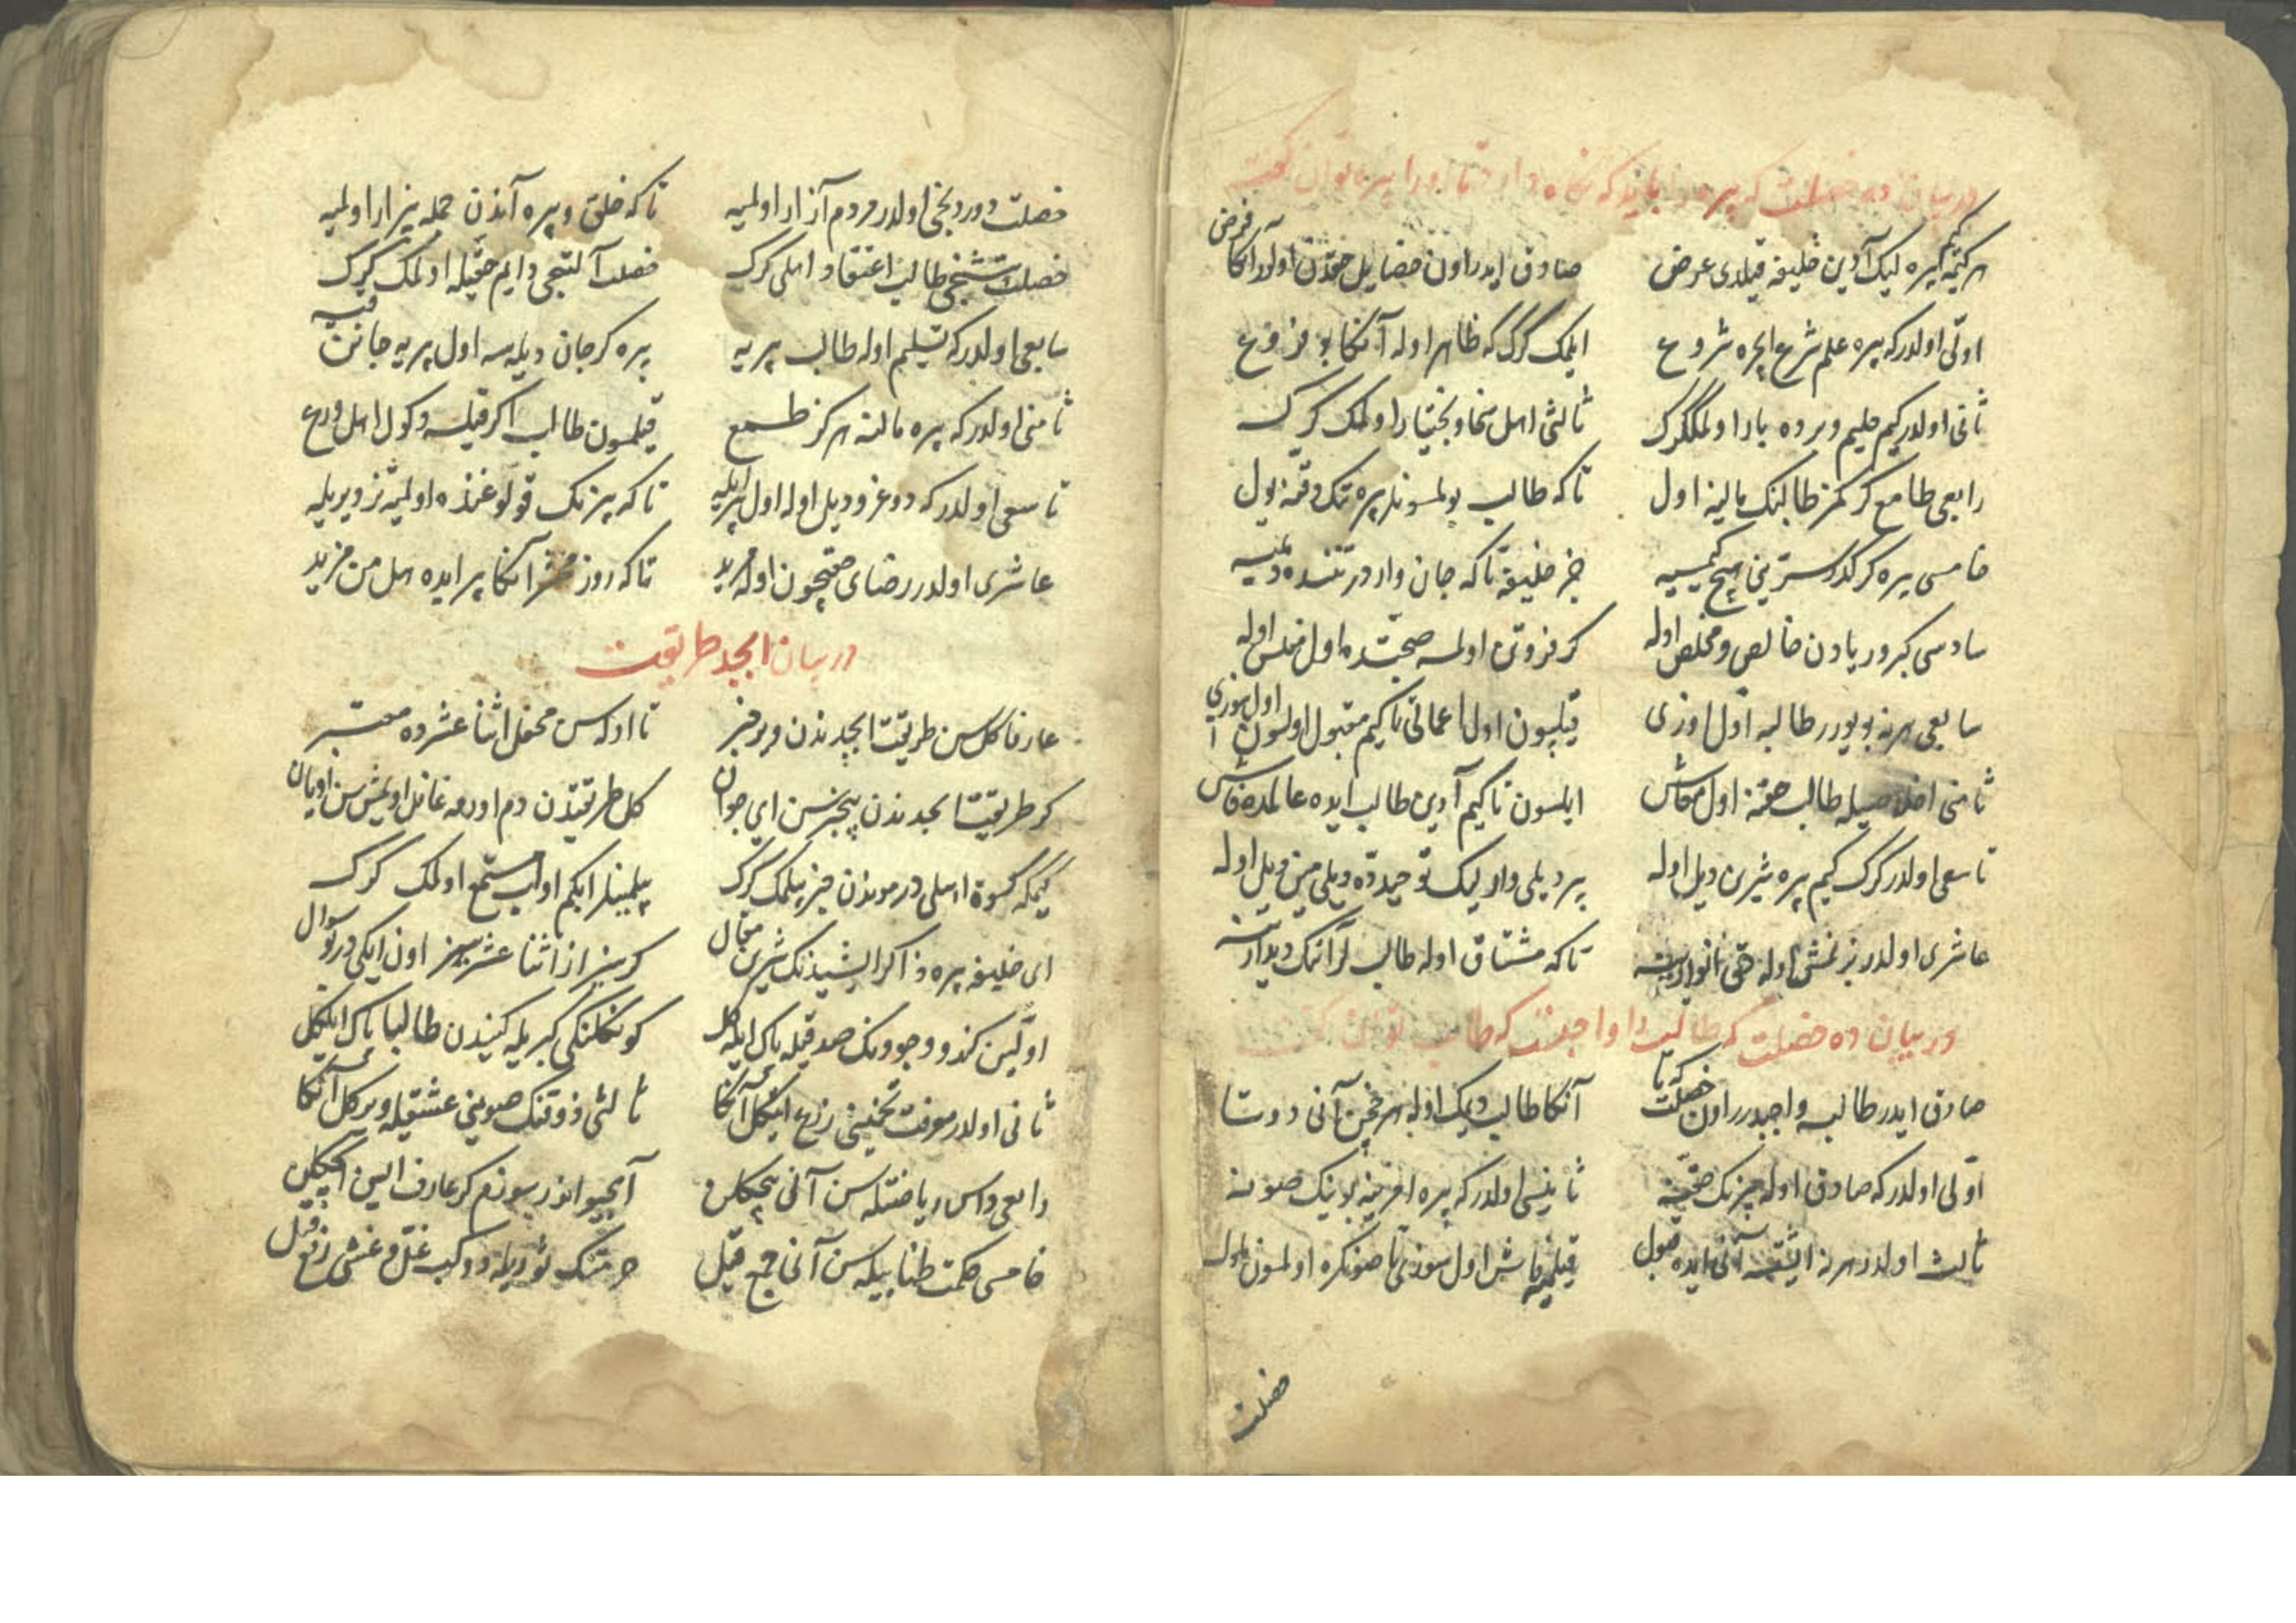 در بیان ده خصلت که پیره باید که نگاه دارد تا اورا پیر توان گفت
هر کیمه کیم پیره لیک آدین خلیفه قیلدی عرض صادق ایدر اون خصایل حقدن اولدر آنکا فرض
اولی اولدر که پیره علم شرع ایچره شروع ایلمک کرک که ظاهر اوله آنکا بو فروع
ثانی اولدر کیم حلیم و برده بار اولمک کرک ثالثی اهل سخا و بختیار اولمک کرک
رابعی طامع کرکمز طالبنک مالینه اول تاکه طالب بولسونلر پیره تنک وقته یول
خامسی پیره کرکدر سترینی هیچ کیمسیه جز خلیفه تاکه جان واردر تننده دیمیه
سادسی کبر و ریادن خالص و مخلص اوله کر فزونی اولسه صحبتده اول مفلس اوله
سابعی هرنه بویورر طالبه اول اوزی قیلسون اول اعمالی تا کیم مقبول اولسون اول سوزی
ثامنی اخلاصیله طالب حقنه اول معاش ایلسون تا کیم آدین طالب ایده عالمده فاش
تاسعی اولدر کرک کیم پیره شیرین دیل اوله بر دیلی وار لیک توحیدده دیلی مین دیل اوله
عاشری اولدر بزنمش اوله حق انوارینه تاکه مشتاق اوله طالبلر آننک دیدارینه
در بیان ده خصلت که طالب را واجبست که طالب توان گفت
صادق ایدر طالبه واجبدر اون خصلت که تا آنکا طالب دیمک اوله هر نچه آنی دوتا
اولی اولدر که صادق اوله پیرنک حقینه ثانیسی اولدر که پیره امرینه بوینک صونه
ثالث اولدر هرنه ایشتسه آنی ایده قبول قیلمیه فاش اول سوزی تا صونکره اولمسون ملول
خصلت
خصلت دوردنجی اولدر مردم آزار اولمیه تاکه خلق و پیره آندن جمله بیزار اولمیه
خصلت بشنجی طالب اعتقاد اهلی کرک خصلت آلتنجی دایم حقیله اولمک کرک
سابعی اولدر که تسلیم اوله طالب پیریه پیره کر جان دیلسه اول پیریه جانن
ثامنی اولدر که پیره مالنه هرکز طمع قیلمسون طالب اکر قیلسه دکول اهل ورع
تاسعی اولدر که دوغرو دیل اوله اول پیریله تاکه پیرنک قولوغنده اولمیه تزویریله
عاشری اولدر رضای حقیچون اوله مرید تاکه روز محشر آنکا پیر ایده هل من مزید
در بیان ابجد طریقت
عارفا کل سن طریقت ابجدندن ویر خبر تا اوله سن محفل اثنا عشرده معتبر
کر طریقت ابجدندن بیخبرسن ای جوان کل طریقتدن دم اورمه غافل اولمش سن اویان
کیمکه کسوة اهلی در موندن خبر بیلمک کرک بیلمینلر ابکم اولب مستمع اولمک کرک
ای خلیفه پیره ذاکر ایشیدنک شیرین مقال کر سز از اثنا عشر سیز اون ایکی در بو سوال
اولین کندو وجودنک صدقیله پاک ایله کل کونکلنکی کبریله کیندن طالبا پاک ایله کل
ثانی اولدر معرفت تخمینی زرع ایتکل آنکا ثالثی ذوقنک صوینی عشقیله ویرکل آنکا
رابعی داس ریاضتله سن آنی بیچکلن آبحیواندر سوزم کر عارف ایسن ایچکلن
خامسی حکمت طنابیله سن آنی جمع قیل حرمتنک ثوریله دوکب غل و غشی رفع قیل